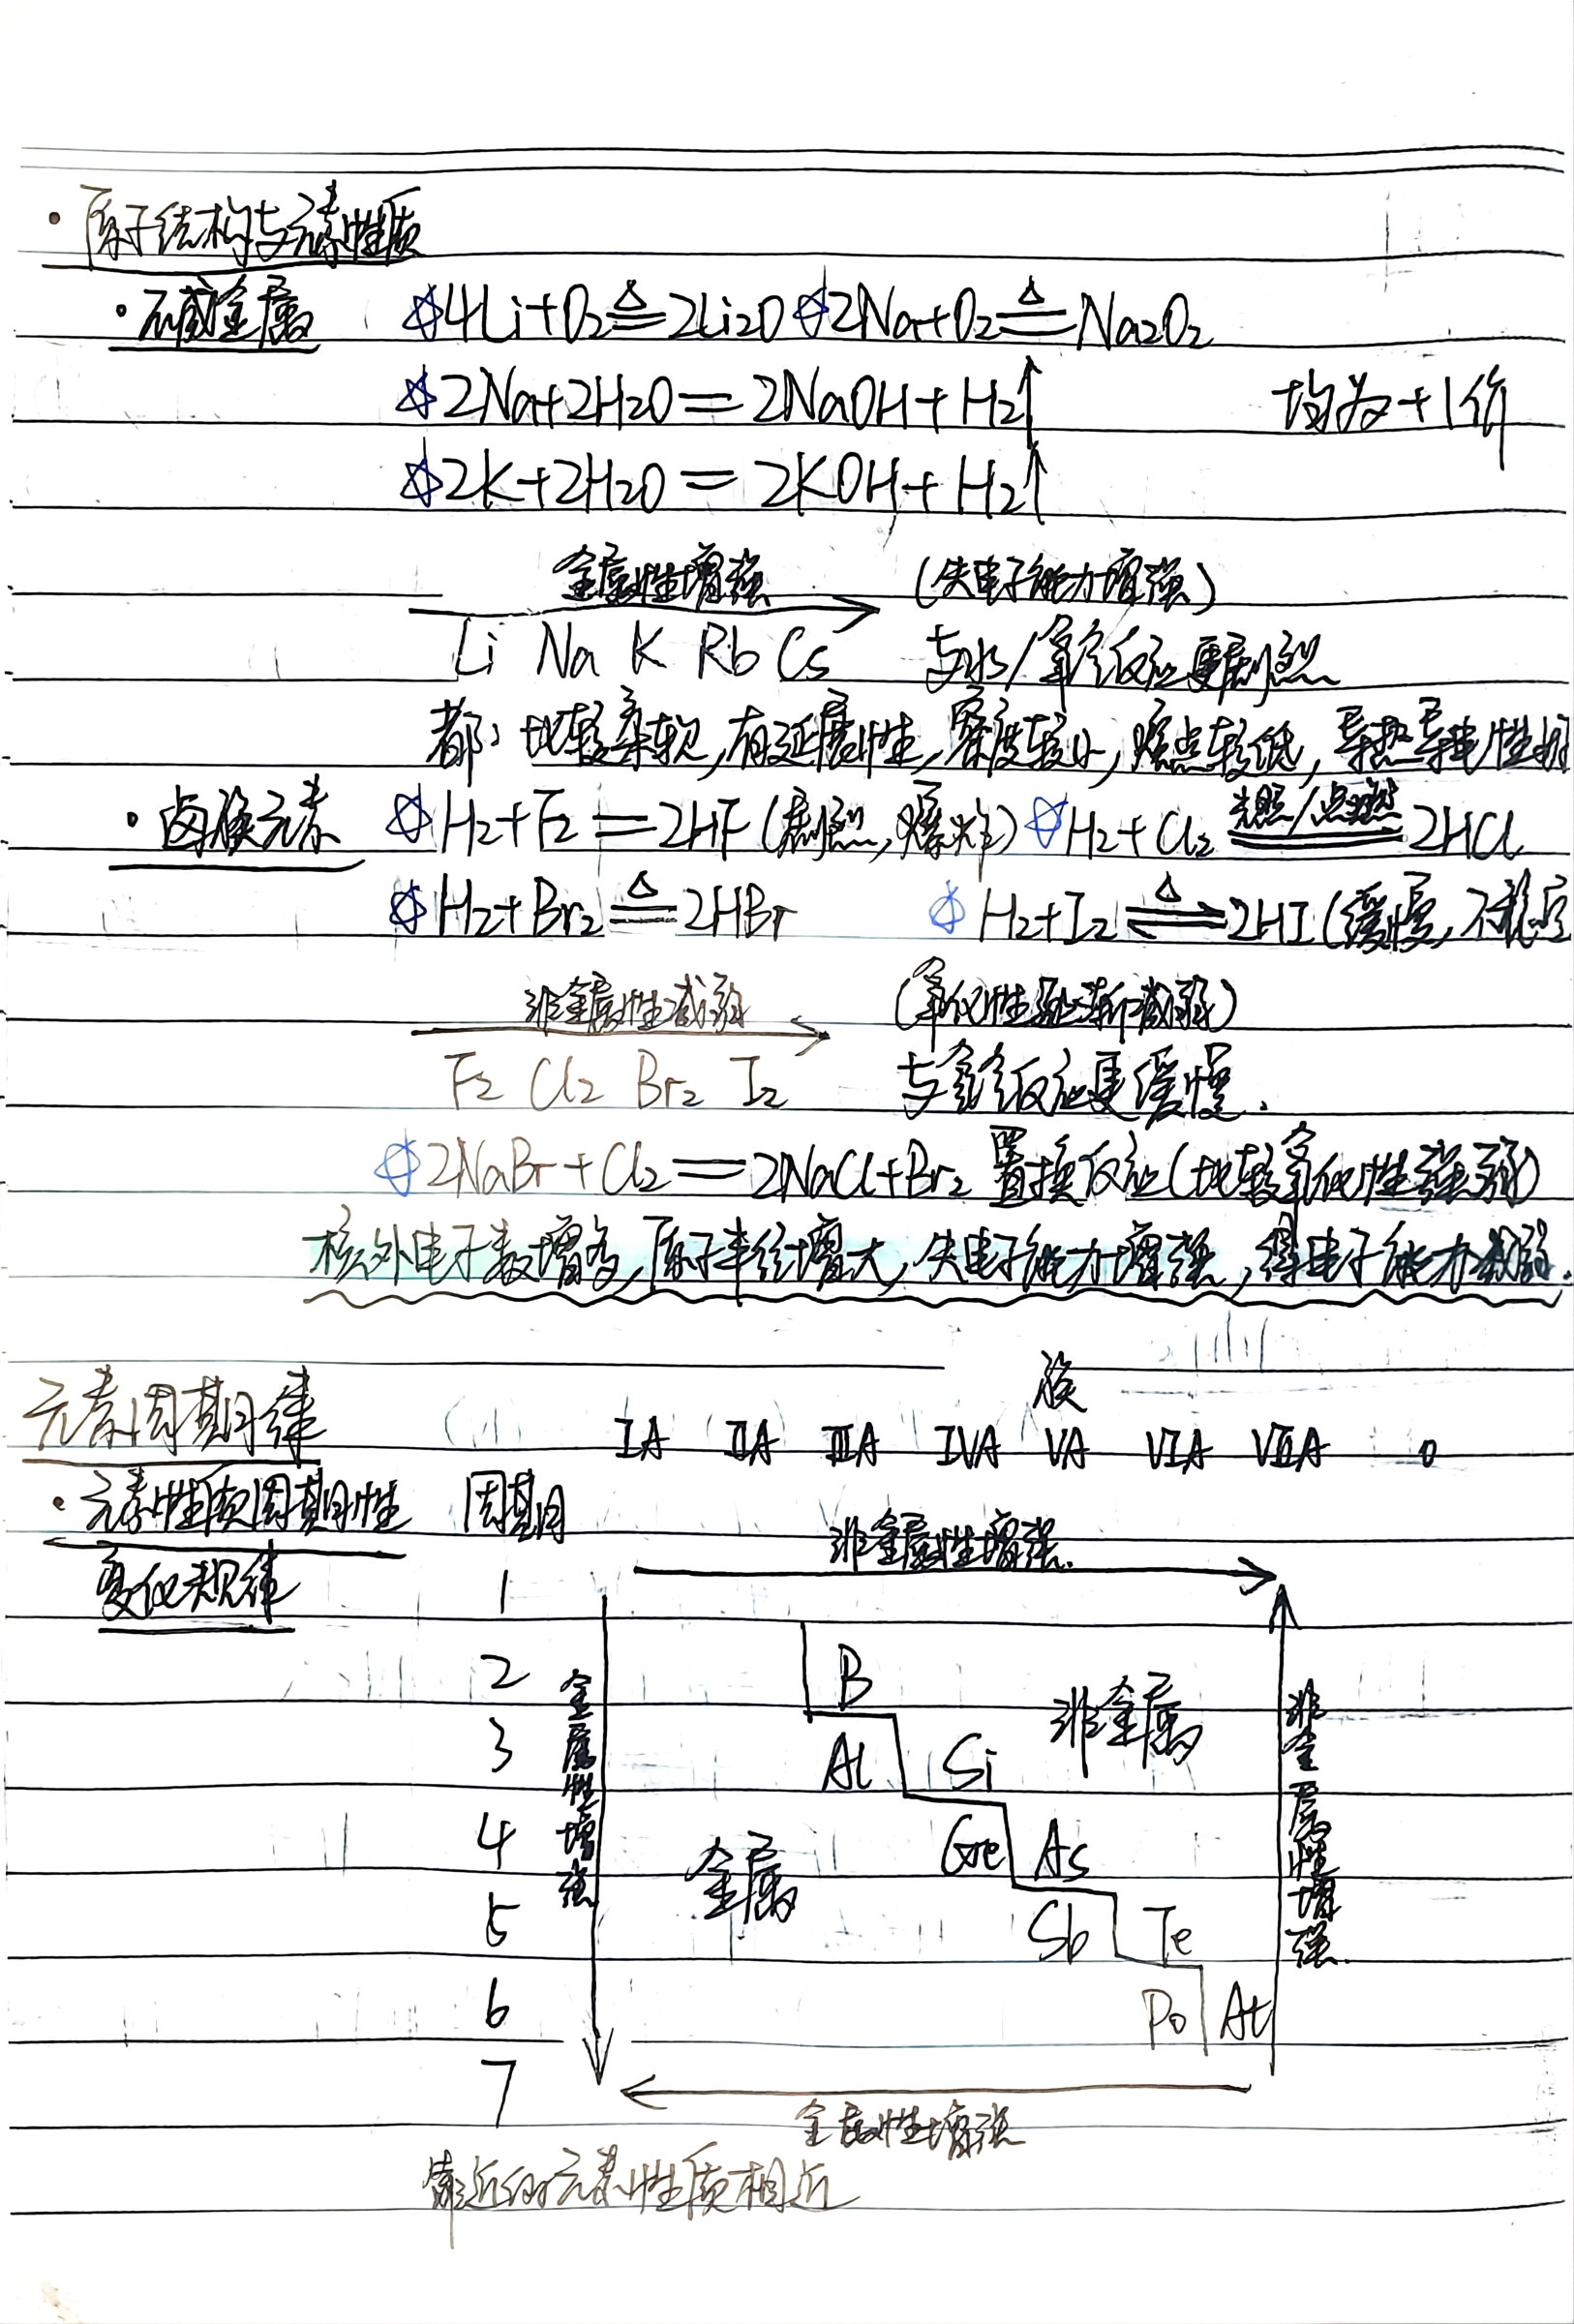 · 原子结构与元素性质
· 碱金属 ☆4Li+O₂≜2Li₂O ☆2Na+O₂≜Na₂O₂
☆2Na+2H₂O=2NaOH+H₂↑ 均为+1价
☆2K+2H₂O=2KOH+H₂↑
金属性增强 (失电子能力增强)
Li Na K Rb Cs 与水/氧气反应更剧烈
都:比较柔软,有延展性,密度较小,熔点较低,导热导电性
· 卤族元素 ☆H₂+F₂=2HF(剧烈,爆炸) ☆H₂+Cl₂ 光照/点燃 2HCl
☆H₂+Br₂≜2HBr ☆H₂+I₂ △⇌ 2HI(缓慢,不稳定
非金属性减弱 (氧化性逐渐减弱)
F₂ Cl₂ Br₂ I₂ 与氢气反应更缓慢.
☆2NaBr+Cl₂=2NaCl+Br₂ 置换反应(比较氧化性强弱)
核外电子数增多,原子半径增大,失电子能力增强,得电子能力减弱.
族
元素周期律 IA IIA IIIA IVA VA VIA VIIA 0
· 元素性质周期性 周期
非金属性增强.
变化规律 1
2 B
金属性增强 非金属 非金属性增强.
3 Al Si
4 金属 Ge As
5 Sb Te
6 Po At
7
金属性增强
靠近的元素性质相近